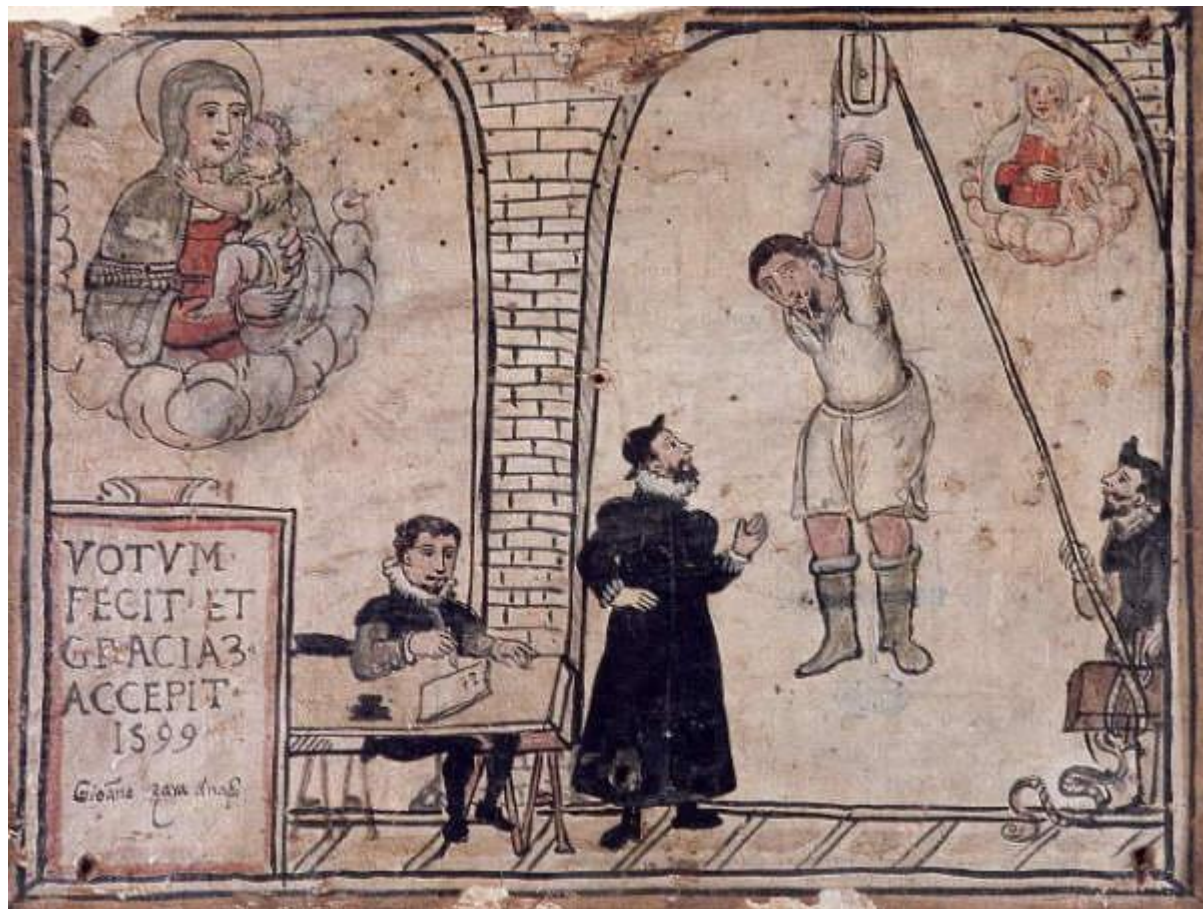 VOTVM·
FECIT·ET
GRACIAȜ·
ACCEPIT·
1599
Gioãne zara